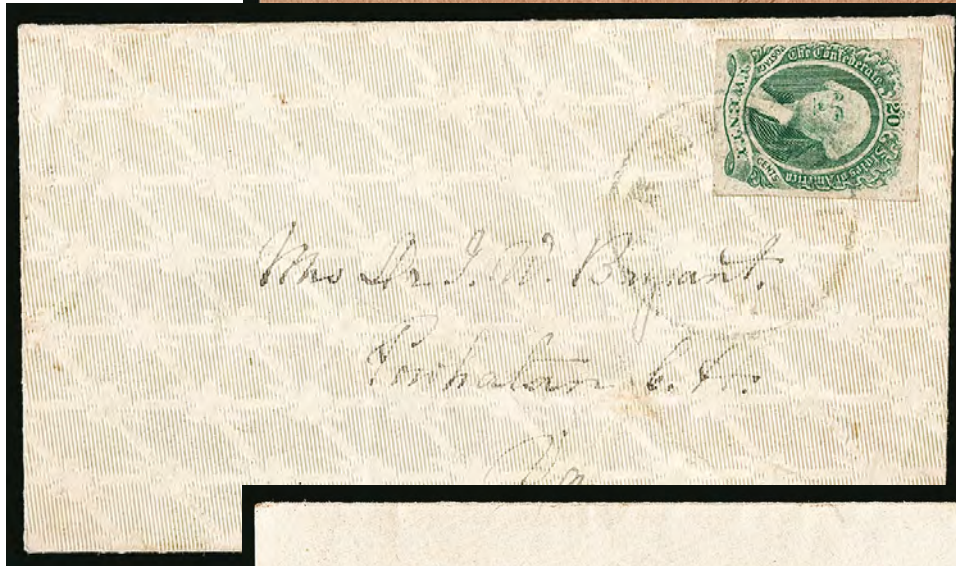 The Confederate
States of America
POSTAGE
TWENTY
CENTS
20
Mrs Dr J. W. Bryant.
Powhatan C. Ho.
Va